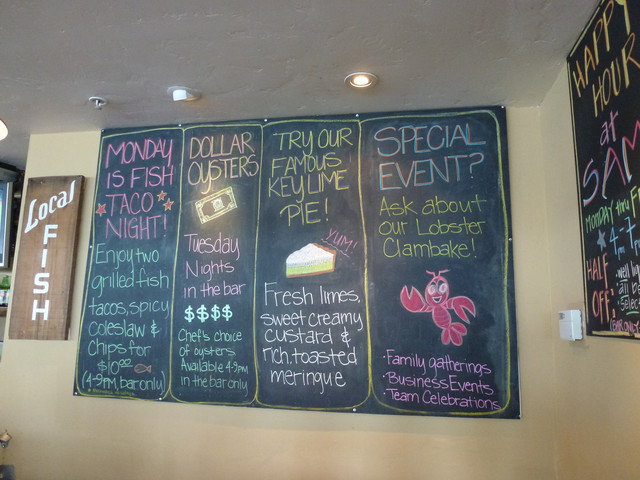 Local
FISH
MONDAY
IS FISH
TACO
NIGHT!
Enjoy two
grilled fish
tacos, spicy
coleslaw &
chips for
$10.00
(4-9PM, bar only)
DOLLAR
OYSTERS
Tuesday
Nights
in the bar
$$$$
Chef's choice
of oysters
Available 4-9pm
in the bar only
TRY OUR
FAMOUS
KEY LIME
PIE!
YUM!
Fresh limes,
sweet creamy
custard &
rich, toasted
meringue
SPECIAL
EVENT?
Ask about
our Lobster
Clambake!
· Family gatherings
· Business Events
· Team Celebrations
HAPPY
HOUR
at
SAM
MONDAY thru FR
4-7
HALF
OFF:
well
all b
selec
(BAR ONLY)